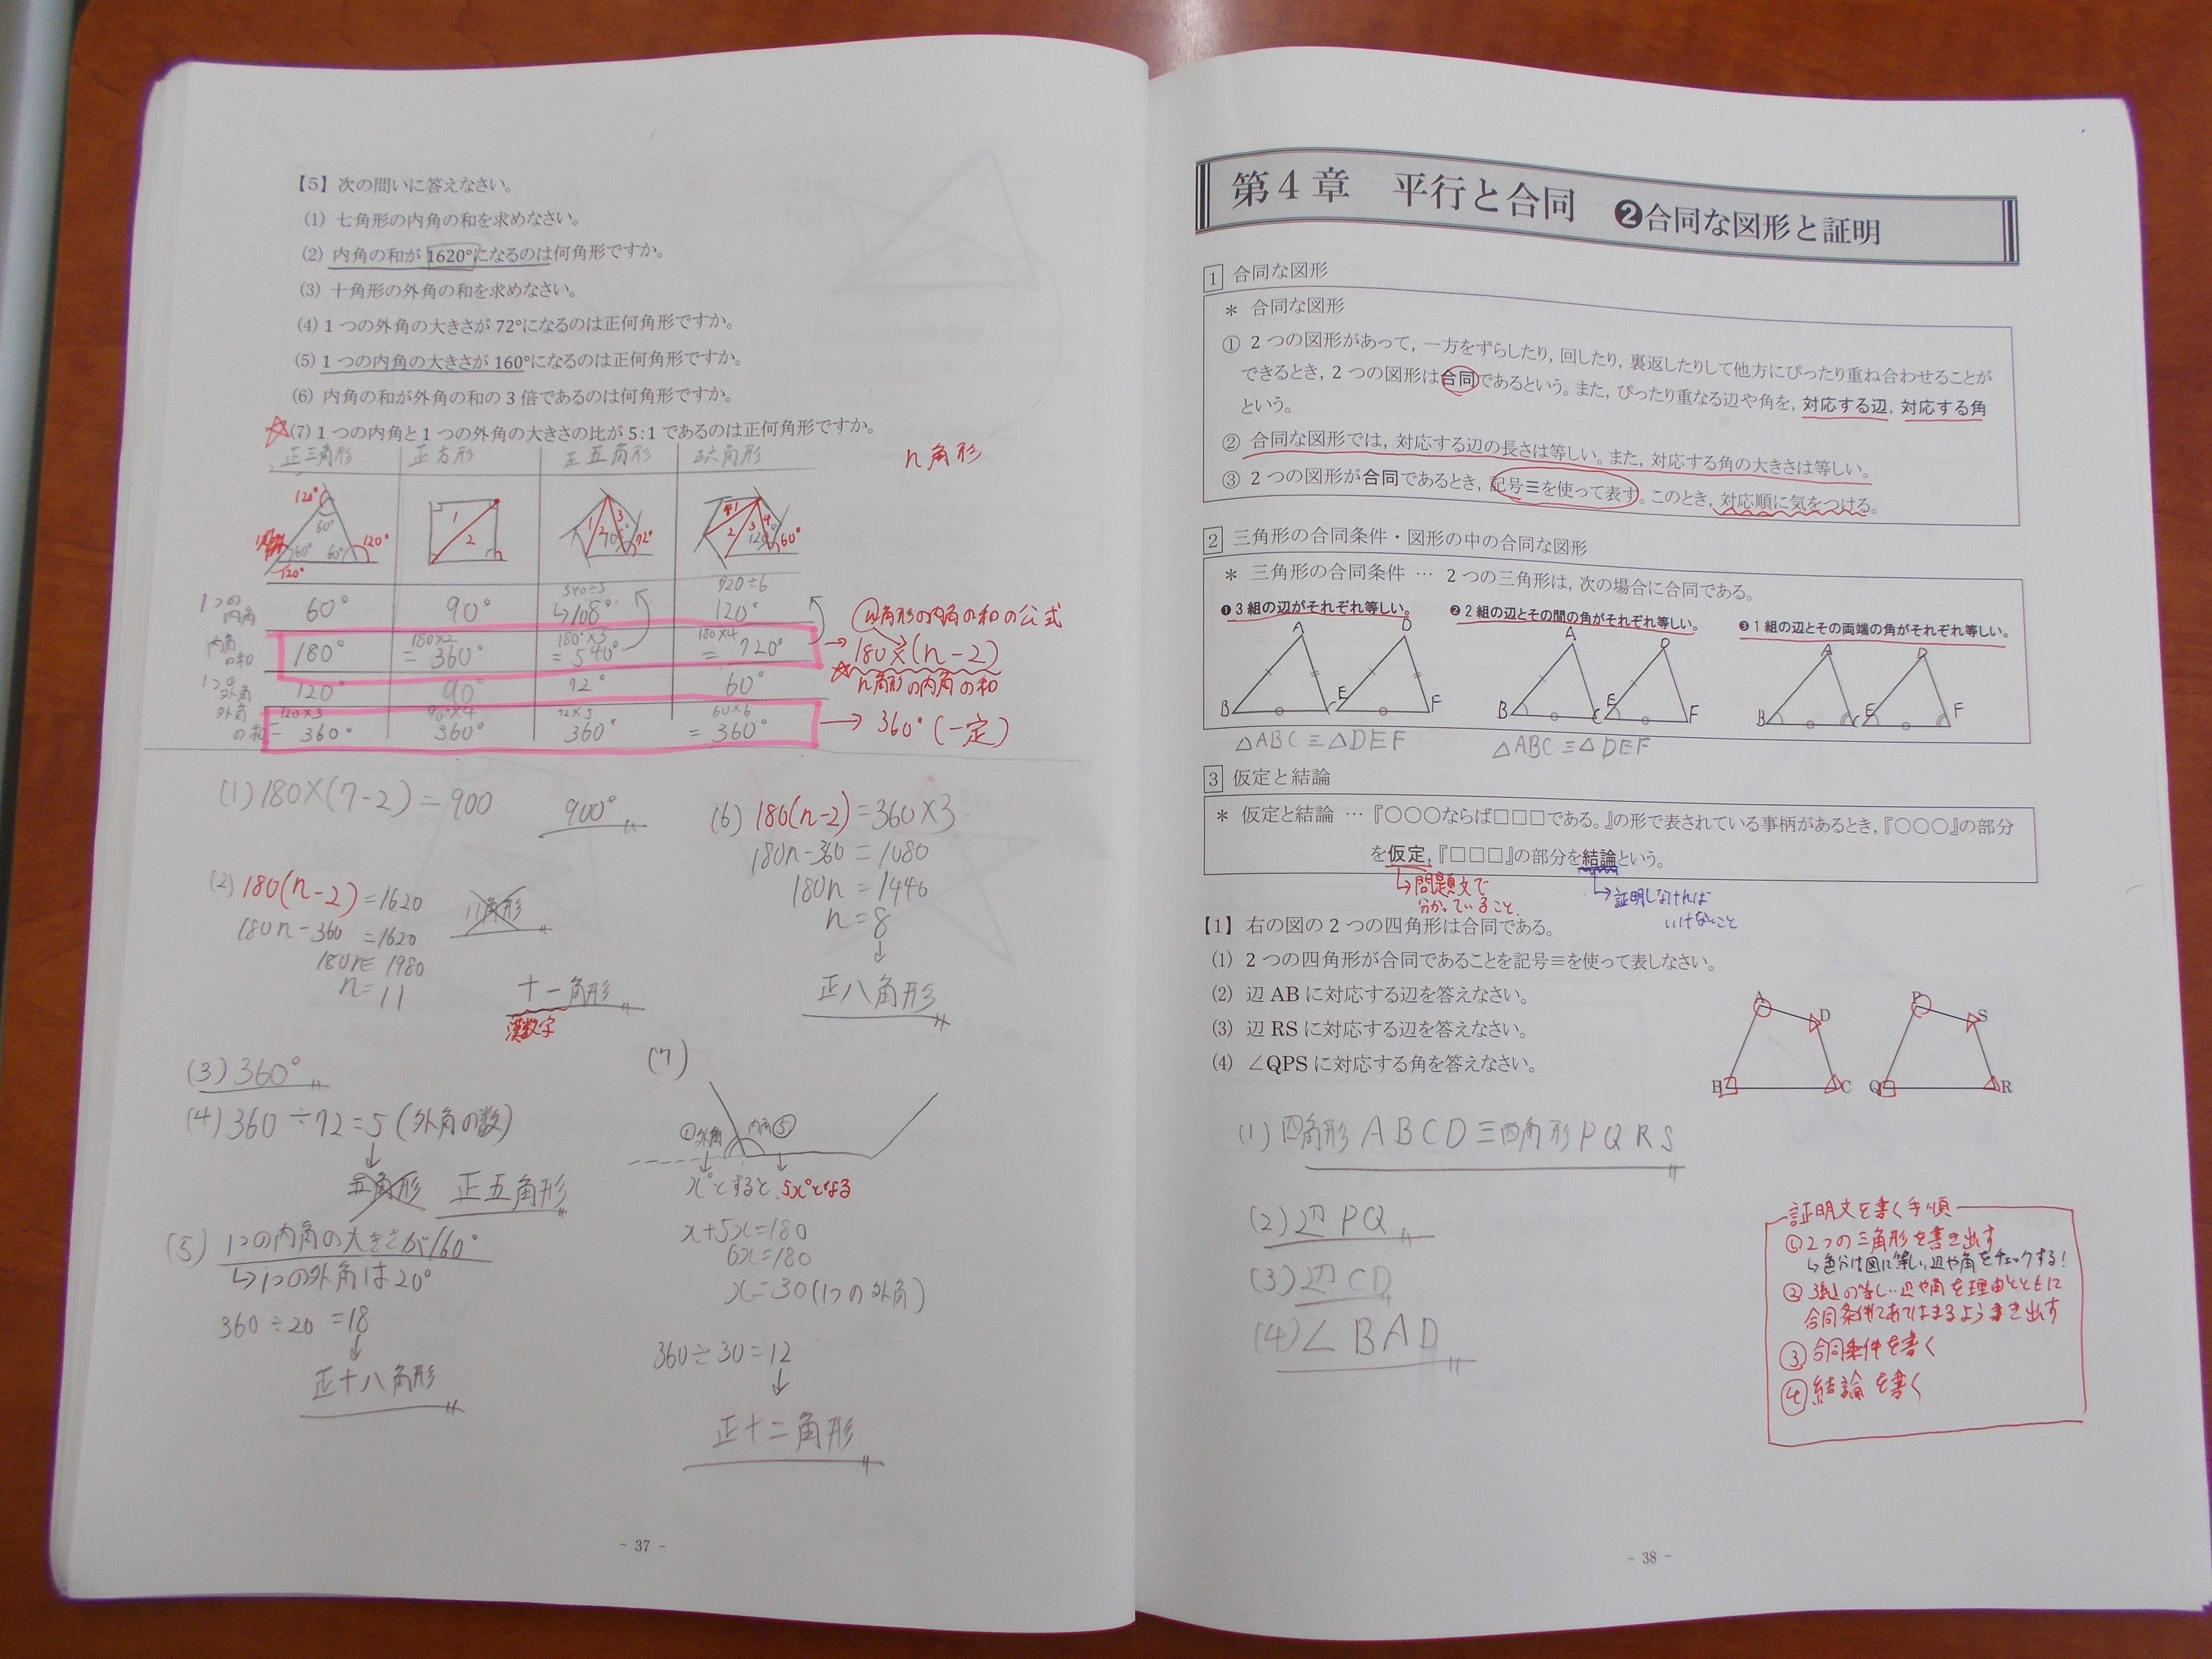 【5】次の問いに答えなさい。
(1) 七角形の内角の和を求めなさい。
(2) 内角の和が 1620°になるのは何角形ですか。
(3) 十角形の外角の和を求めなさい。
(4) 1 つの外角の大きさが 72°になるのは正何角形ですか。
(5) 1 つの内角の大きさが 160°になるのは正何角形ですか。
(6) 内角の和が外角の和の 3 倍であるのは何角形ですか。
☆(7) 1 つの内角と 1 つの外角の大きさの比が 5:1 であるのは正何角形ですか。
正三角形 正方形 正五角形 正六角形
n角形
120° 60° 60° 60° 120° 120°
1 2
1 2 3 72°
1 2 3 4 120° 60°
540÷5 720÷6
1つの内角 60° 90° ↳108° 120°
n角形の内角の和の公式
180×2 180×3 180×4
内角の和 180° =360° =540° = 720° → 180×(n-2)
☆ n角形の内角の和
1つの外角 120° 90° 72° 60°
120×3 90°×4 72×5 60×6
外角の和 = 360° 360° 360° = 360° → 360°(一定)
(1) 180×(7-2)=900 900°
(2) 180(n-2)=1620 11角形
180n-360 =1620
180n= 1980
n= 11
十一角形
漢数字
(3) 360°
(4) 360 ÷72=5 (外角の数)
↓
五角形 正五角形
(5) 1つの内角の大きさが160°
↳1つの外角は20°
360 ÷20 =18
↓
正十八角形
(6) 180(n-2)=360×3
180n-360 = 1080
180n = 1440
n=8
↓
正八角形
(7)
①外角 内角⑤
x°とすると 5x°となる
x+5x=180
6x=180
x=30(1つの外角)
360÷30=12
↓
正十二角形
- 37 -
第4章 平行と合同 ❷合同な図形と証明
1 合同な図形
* 合同な図形
① 2 つの図形があって, 一方をずらしたり, 回したり, 裏返したりして他方にぴったり重ね合わせることが
できるとき, 2 つの図形は合同であるという。また, ぴったり重なる辺や角を, 対応する辺, 対応する角
という。
② 合同な図形では, 対応する辺の長さは等しい。また, 対応する角の大きさは等しい。
③ 2 つの図形が合同であるとき, 記号≡を使って表す。このとき, 対応順に気をつける。
2 三角形の合同条件・図形の中の合同な図形
* 三角形の合同条件 … 2 つの三角形は, 次の場合に合同である。
❶3 組の辺がそれぞれ等しい。 ❷2 組の辺とその間の角がそれぞれ等しい。 ❸1 組の辺とその両端の角がそれぞれ等しい。
A D A D A D
B C E F B C E F B C E F
△ABC≡△DEF △ABC≡△DEF
3 仮定と結論
* 仮定と結論 … 『○○○ならば□□□である。』の形で表されている事柄があるとき,『○○○』の部分
を仮定,『□□□』の部分を結論という。
↳問題文で
分かっていること.
↳証明しなければ
いけないこと
【1】右の図の 2 つの四角形は合同である。
(1) 2 つの四角形が合同であることを記号≡を使って表しなさい。
(2) 辺 AB に対応する辺を答えなさい。
(3) 辺 RS に対応する辺を答えなさい。
(4) ∠QPS に対応する角を答えなさい。
A D P S
B C Q R
(1) 四角形ABCD≡四角形PQRS
(2) 辺 PQ
(3) 辺 CD
(4) ∠BAD
証明文を書く手順
① 2つの三角形を書き出す
↳色分け図に等しい辺や角をチェックする!
② 3組の等しい辺や角を理由とともに
合同条件にあてはまるよう書き出す
③ 合同条件を書く
④ 結論を書く
- 38 -